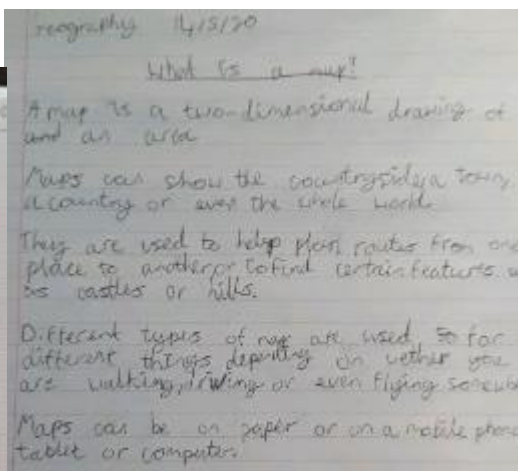 Geography 14/5/20
What is a map?
A map is a two-dimensional drawing of
and an area
Maps can show the countryside, a town,
a country or even the whole world.
They are used to help plan routes from one
place to another, or to find certain features
as castles or hills.
Different types of map are used so for
different things depending on wether you
are walking, driving or even flying
Maps can be on paper or on a mobile phone
tablet or computer.